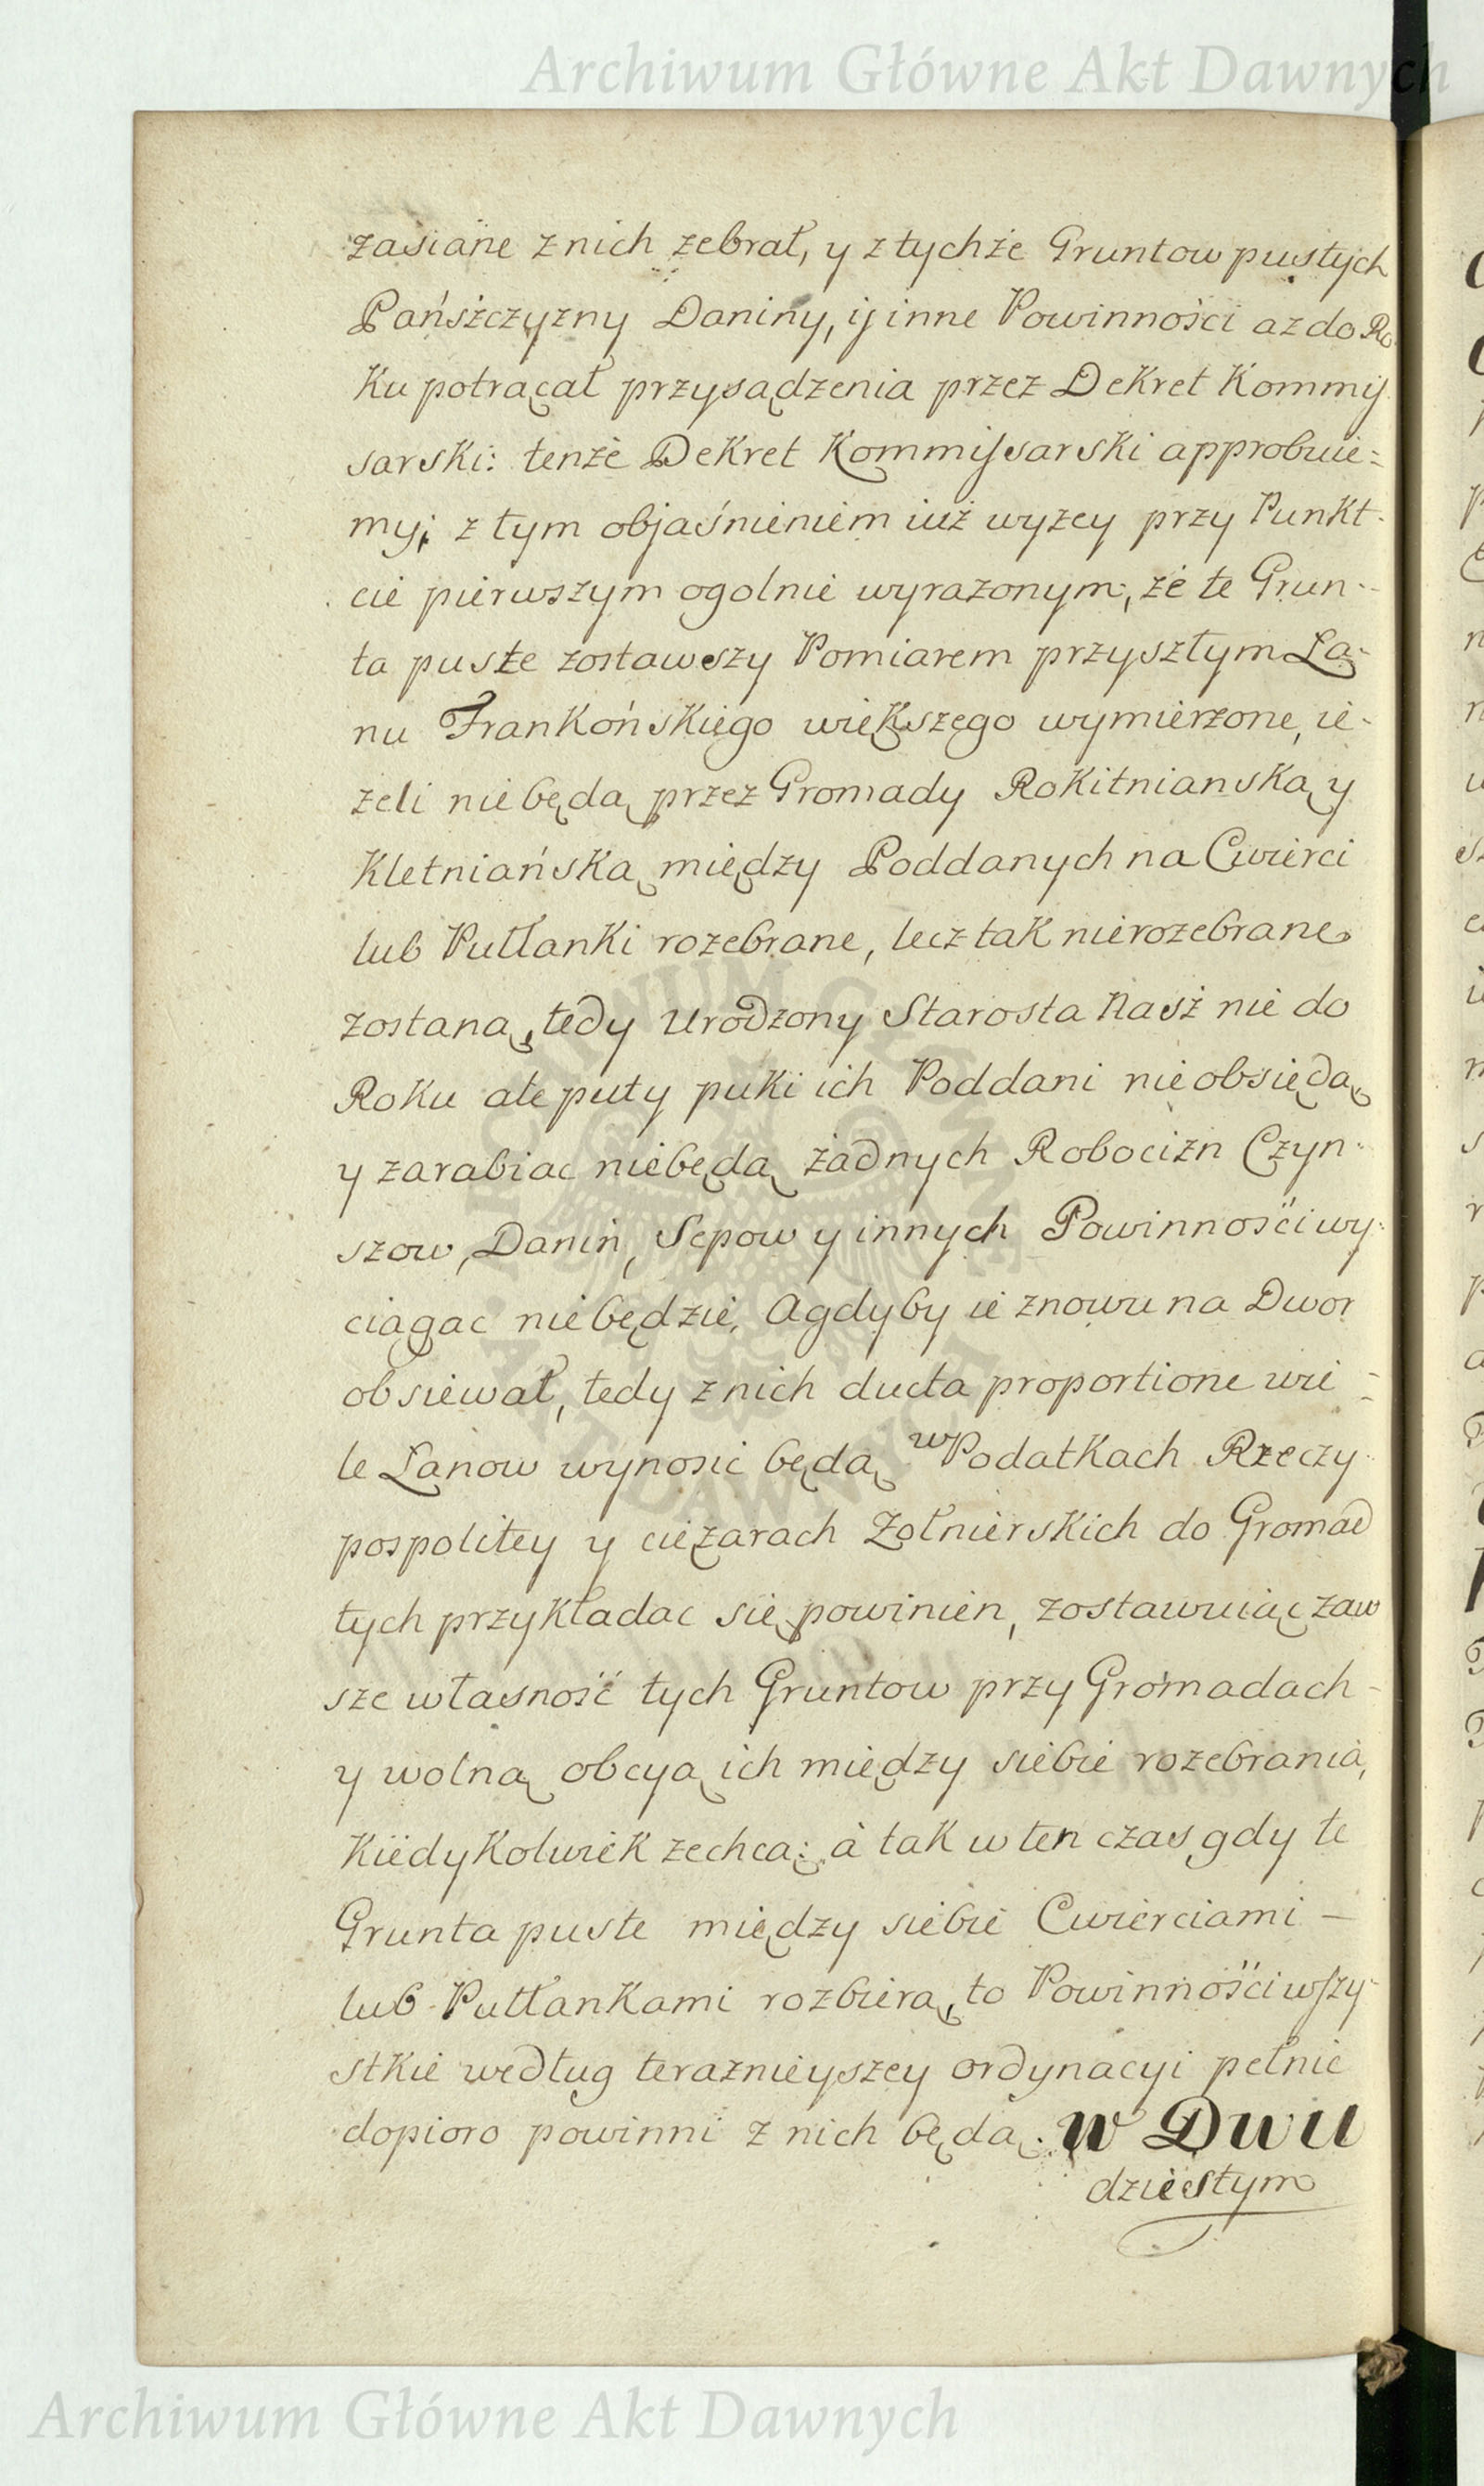 Archiwum Główne Akt Dawnych
zasiane z nich zebrał, y z tychże Gruntow pustych
Pańszczyzny Daniny, ij inne Powinności az do Ro
ku potrącał przysądzenia przez Dekret Kommis
sarski: tenże Dekret Kommissarski approbuie=
my; z tym objaśnieniem iuż wyzey przy Punkt-
cie pierwszym ogolnie wyrazonym, że te Grun-
ta puste zostawszy Pomiarem przyszłym La-
nu Frankońskiego większego wymierzone, ie-
żeli nie będą przez Gromady Rokitnianską y
Kletniańską między Poddanych na Cwierci
lub Putłanki rozebrane, lecz tak nierozebrane
zostaną, tedy Urodzony Starosta Nasz nie do
Roku ale puty puki ich Poddani nie obsiędą
y zarabiac niebędą żadnych Robocizn Czyn-
szow, Danin, Sepow y innych Powinności wy-
ciągac niebędzie, Agdyby ie znowu na Dwor
obsiewał, tedy z nich ducta proportione wie=
le Lanow wynosic będą w Podatkach Rzeczy-
pospolitey y ciężarach Zołnierskich do Gromad
tych przykładac się powinien, zostawuiąc zaw
sze własność tych Gruntow przy Gromadach-
y wolną obcyą ich między siebie rozebrania,
Kiedykolwiek zechcą: à tak w ten czas gdy te
Grunta puste między siebie Cwierciami —
lub Putłankami rozbierą, to Powinności wszy-
stkie według teraznieyszey ordynacyi pełnic
dopioro powinni z nich będą. W Dwu
dziestym
Archiwum Główne Akt Dawnych